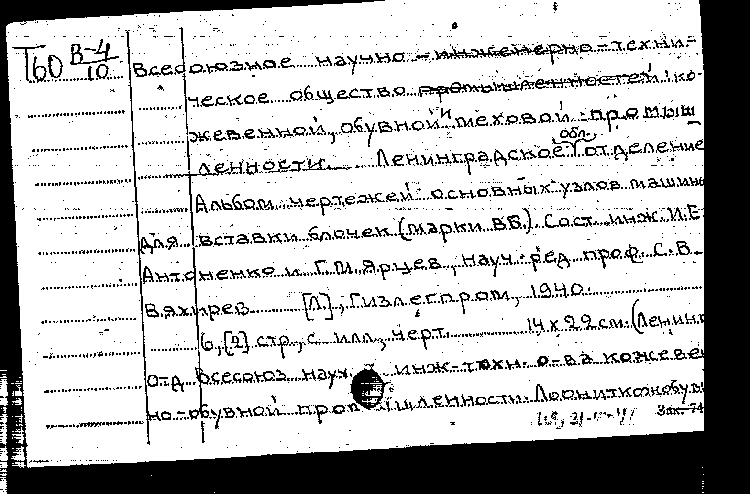 Т60 В-4/10
Всесоюзное научно-инженерно-техни-
ческое общество промышленностей: ко-
жевенной, обувной и меховой промыш
ленности. Ленинградское обл. отделение
Альбом чертежей основных узлов машины
для вставки блочек (марки ВБ). Сост. инж. И.Е.
Антоненко и Г.И. Ярцев, науч. ред. проф. С.В.
Вяхирев [Л.], Гизлегпром, 1940.
6, [2] стр., с илл., черт. 14 х 22 см. (Ленингр
отд. Всесоюз. науч. инж-техн. о-ва кожеве
но-обувной пром шленности. Лониткожобув
Зак. 74